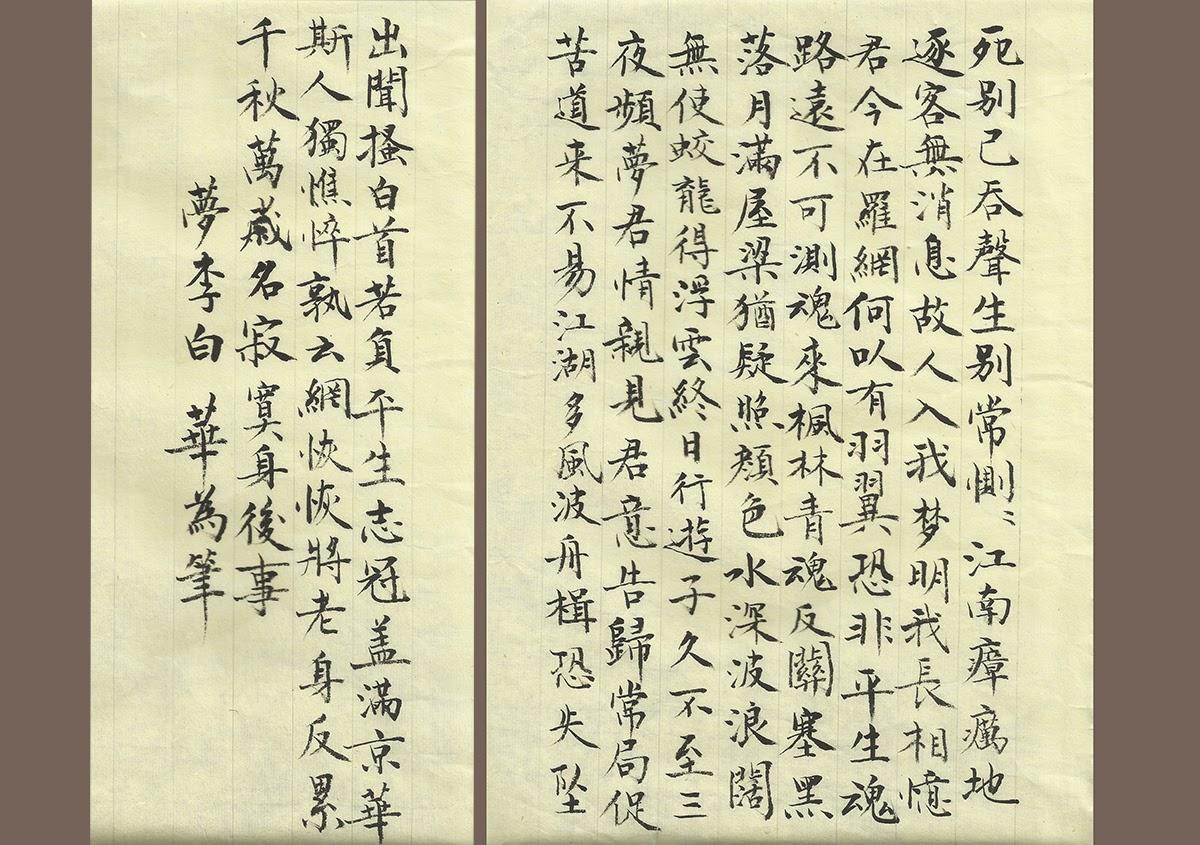 死别已吞聲生别常惻〻江南瘴癘地
逐客無消息故人入我梦明我長相憶
君今在羅網何以有羽翼恐非平生魂
路遠不可測魂來楓林青魂反關塞黑
落月滿屋梁猶疑照顔色水深波浪闊
無使蛟龍得浮雲終日行遊子久不至三
夜頻夢君情親見君意告歸常局促
苦道来不易江湖多風波舟楫恐失墜
出聞搔白首若負平生志冠盖滿京華
斯人獨憔悴孰云網恢恢將老身反累
千秋萬歲名寂寞身後事
夢李白 華為筆